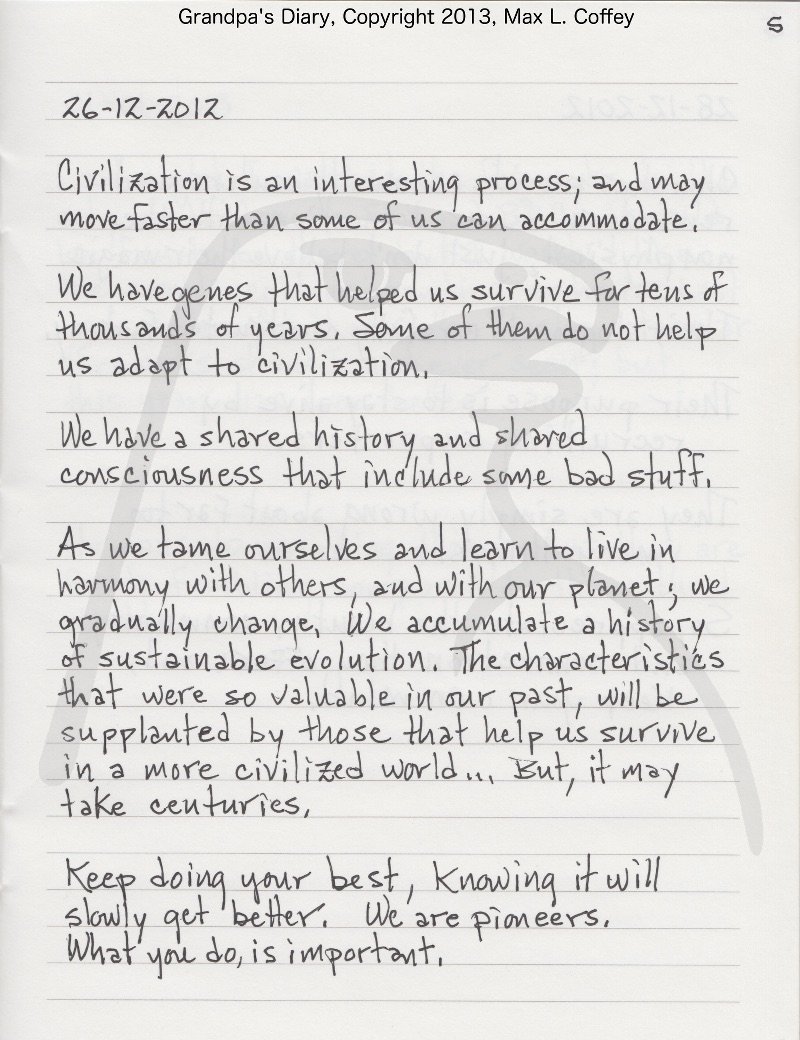 Grandpa's Diary, Copyright 2013, Max L. Coffey
5
26-12-2012
Civilization is an interesting process; and may
move faster than some of us can accommodate.
We have genes that helped us survive for tens of
thousands of years. Some of them do not help
us adapt to civilization.
We have a shared history and shared
consciousness that include some bad stuff.
As we tame ourselves and learn to live in
harmony with others, and with our planet; we
gradually change. We accumulate a history
of sustainable evolution. The characteristics
that were so valuable in our past, will be
supplanted by those that help us survive
in a more civilized world... But, it may
take centuries.
Keep doing your best, Knowing it will
slowly get better. We are pioneers.
What you do, is important.